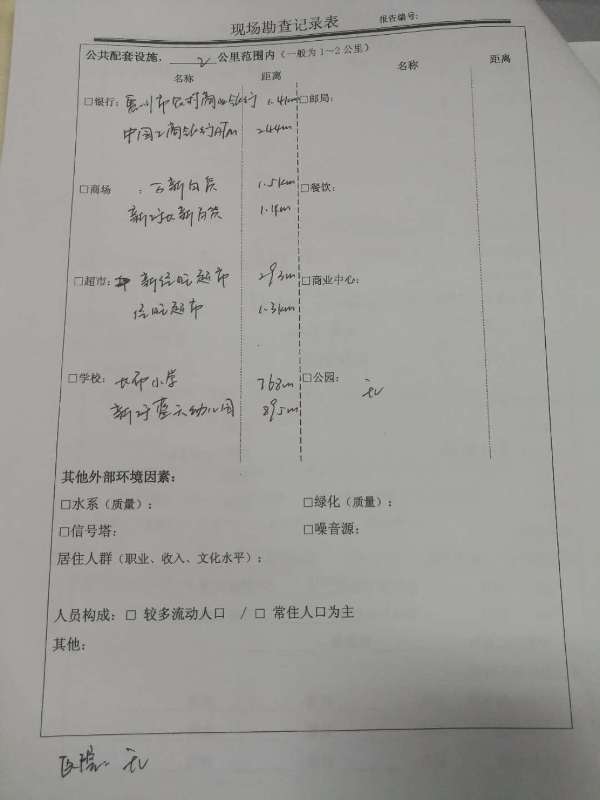 现场勘查记录表 报告编号:
公共配套设施. 2 公里范围内（一般为1~2公里）
名称 距离 名称 距离
□银行: 惠州市农村商业银行 1.4km □邮局:
中国工商银行ATM 244m
□商场 : 百货 1.5km □餐饮:
新百货 1.4m
□超市: 新佳旺超市 293m □商业中心:
佳旺超市 1.3km
□学校: 长布小学 768m □公园: 无
新圩蓝天幼儿园 895m
其他外部环境因素:
□水系（质量）: □绿化（质量）:
□信号塔: □噪音源:
居住人群（职业、收入、文化水平）:
人员构成: □ 较多流动人口 / □ 常住人口为主
其他:
医院: 无